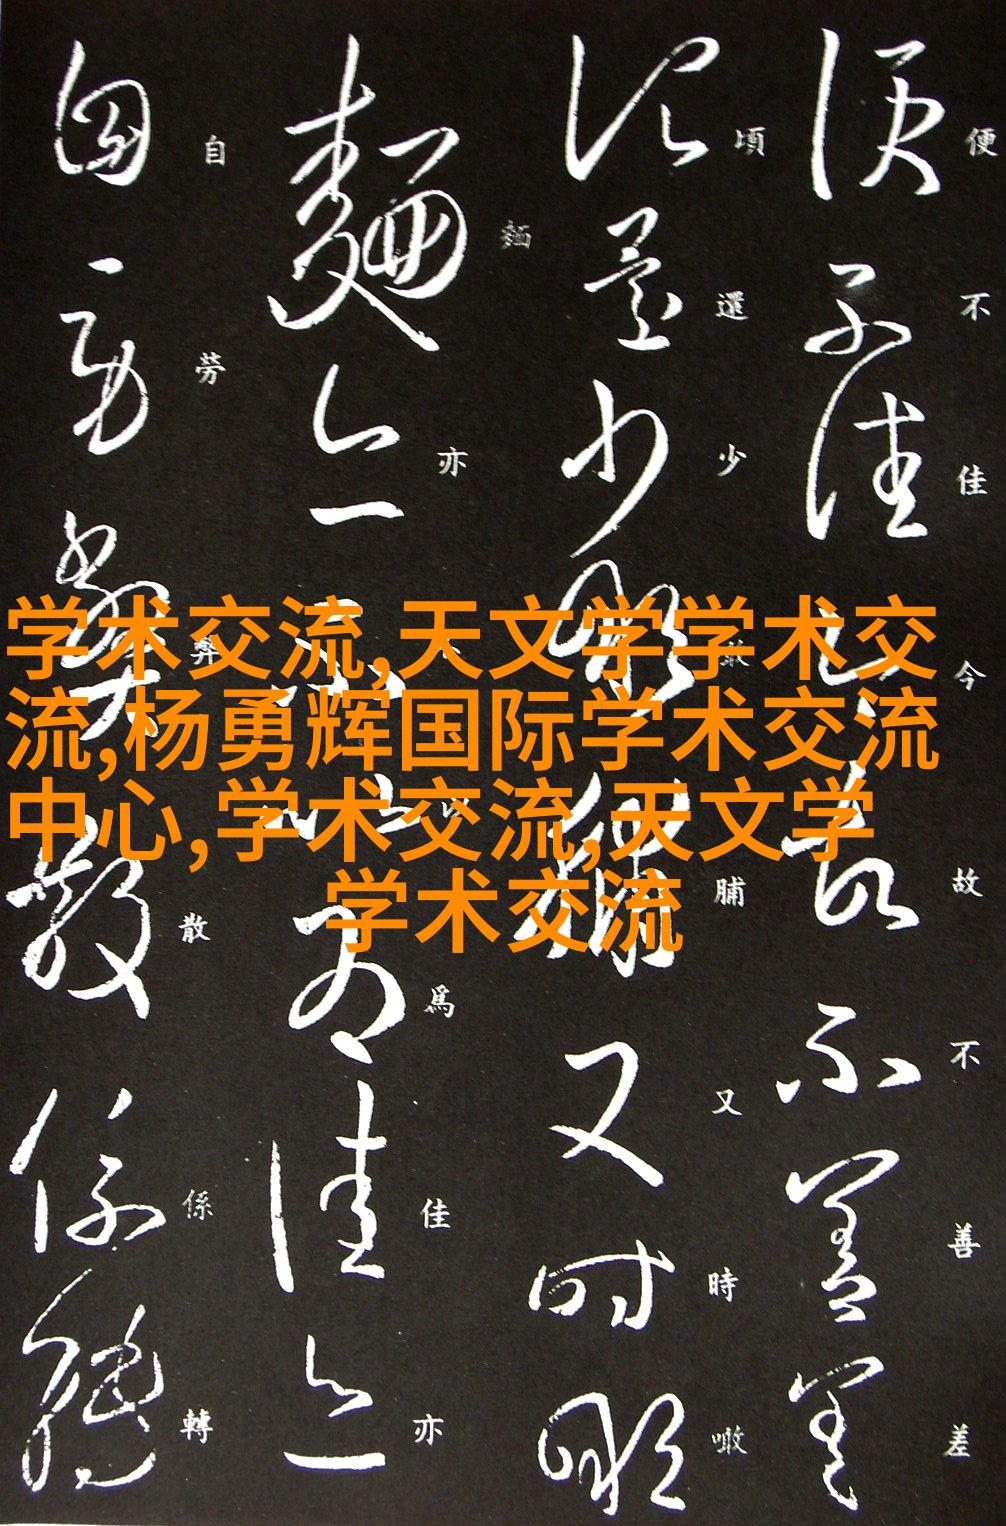 便不佳今故不善差
頃還少噉脯又時噉
麵亦不以爲佳亦
自勞弊散係轉
学术交流,天文学学术交
流,杨勇辉国际学术交流
中心,学术交流,天文学
学术交流